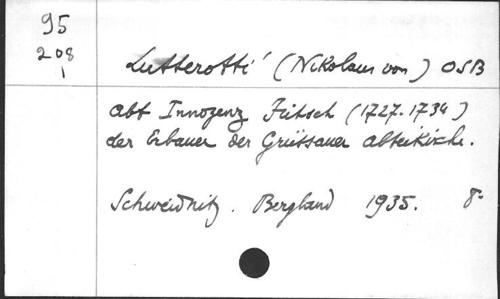 95
208
1
Lutterotti (Nikolaus von) OSB
Abt Innozenz Fritsch (1727-1734)
der Erbauer der Grüssauer Abteikirche.
Schweidnitz. Bergland 1935. 8°